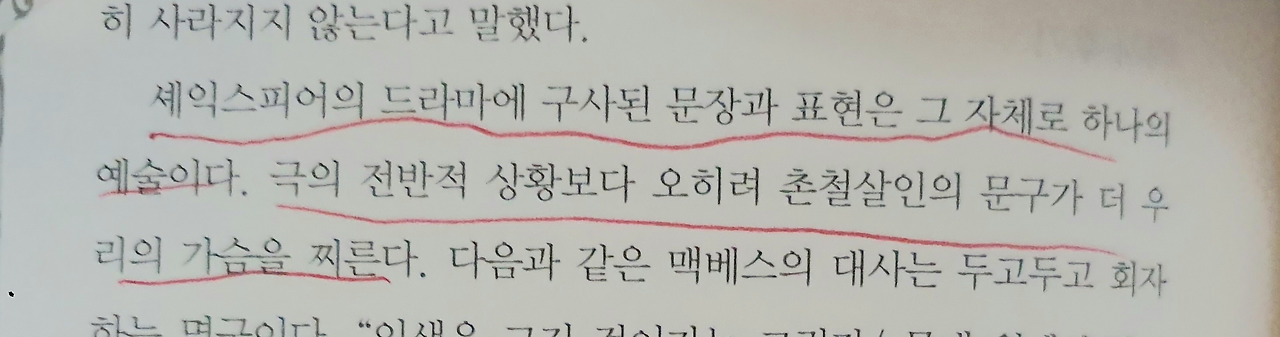 히 사라지지 않는다고 말했다.
셰익스피어의 드라마에 구사된 문장과 표현은 그 자체로 하나의
예술이다. 극의 전반적 상황보다 오히려 촌철살인의 문구가 더 우
리의 가슴을 찌른다. 다음과 같은 맥베스의 대사는 두고두고 회자
하는 명구이다. “인생은